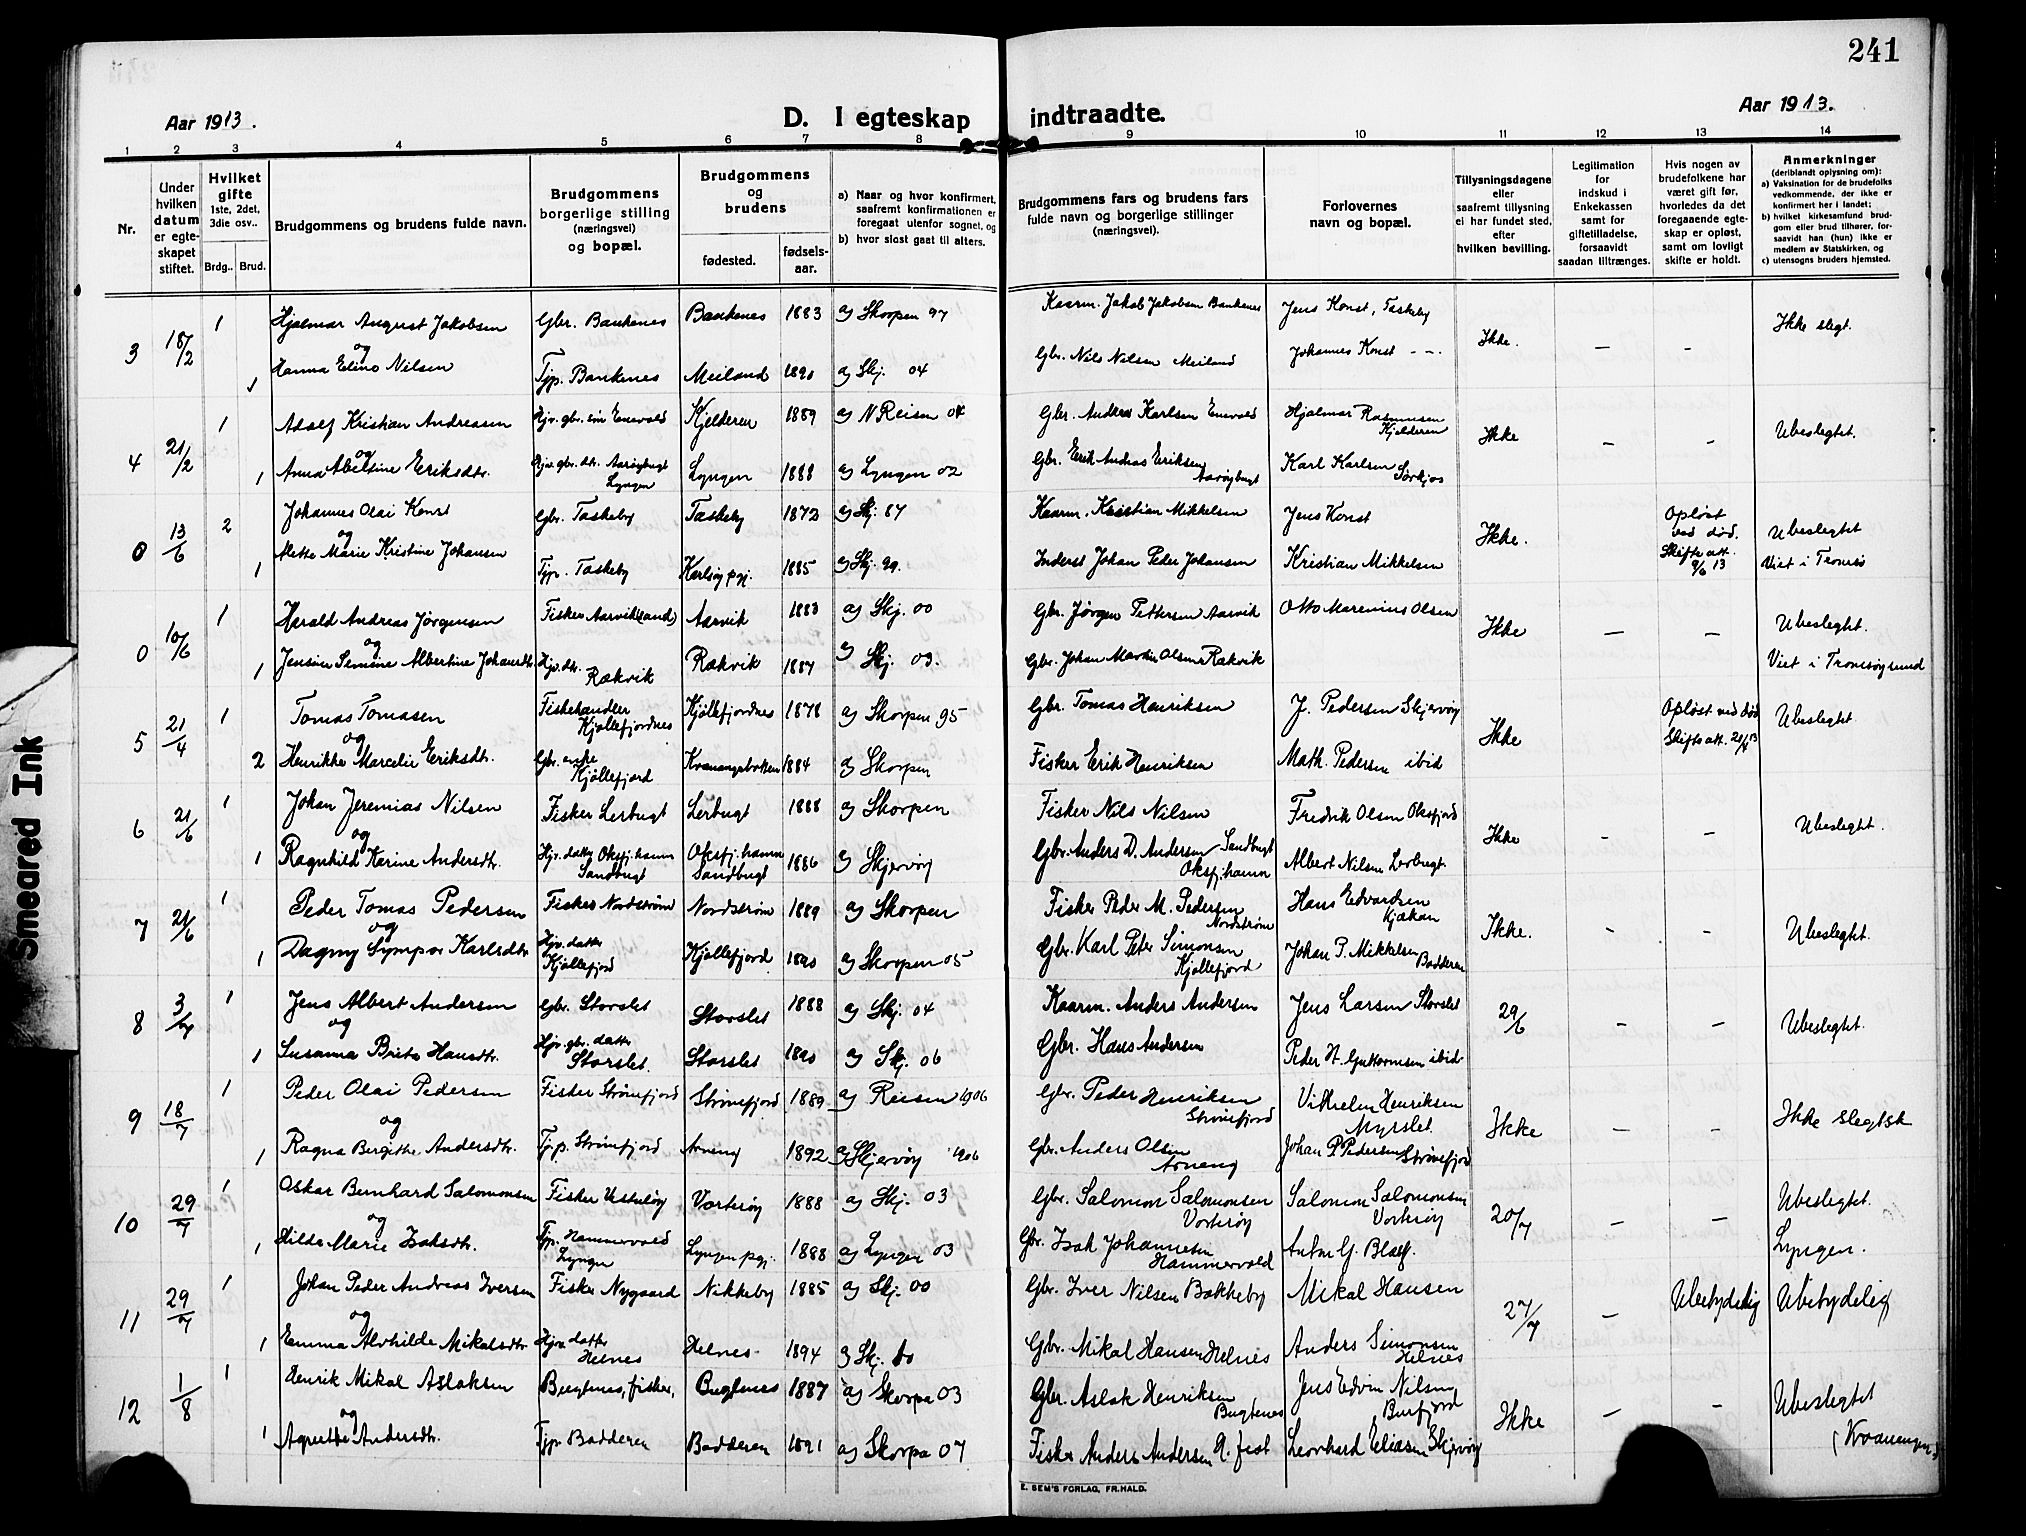 241
Aar 1913.
D. I egteskap indtraadte.
Aar 1913.
1 2 3 4 5 6 7 8 9 10 11 12 13 14
Nr.
Under hvilken datum er egte-skapet stiftet.
Hvilket gifte 1ste, 2det, 3die osv..
Brdg.. Brud.
Brudgommens og brudens fulde navn.
Brudgommens borgerlige stilling (næringsvei) og bopæl.
Brudgommens og brudens
fødested. fødsels-aar.
a) Naar og hvor konfirmert, saafremt konfirmationen er foregaat utenfor sognet, og
b) hvor sidst gaat til alters.
Brudgommens fars og brudens fars fulde navn og borgerlige stillinger (næringsvei).
Forlovernes navn og bopæl.
Tillysningsdagene eller saafremt tillysning ei har fundet sted, efter hvilken bevilling.
Legitimation for indskud i Enkekassen samt for giftetilladelse, forsaavidt saadan tiltrænges.
Hvis nogen av brudefolkene har været gift før, hvorledes da det foregaaende egte-skap er opløst, samt om lovligt skifte er holdt.
Anmerkninger (deriblandt oplysning om):
a) Vaksination for de brudefolks vedkommende, der ikke er konfirmert her i landet;
b) hvilket kirkesamfund brud-gom eller brud tilhører, for-saavidt han (hun) ikke er medlem av Statskirken, og
c) utensogns bruders hjemsted.
3 18/2 1 Hjalmar August Jakobsen Gbr. Bankenes Bankenes 1883 a) Skorpen 97 Kaarm. Jakob Jakobsen Bankenes Jens Konst, Taskeby Ikke. — - Ikke slegt.
og
1 Hanna Elino Nilsen Tjp. Bankenes Meiland 1890 a) Skj. 04 Gbr. Nils Nilsen Meiland Johannes Konst - -.
4 21/2 1 Adolf Kristian Andreasen Hjv. gbr. søn Enevold Kjelderen 1889 a) N Reisen 04 Gbr. Anders Karlsen Enevold Hjalmar Rasmussen Kjelderen Ikke — - Ubeslegtet.
og
1 Anna Abeline Eriksdtr. Hjv. gbr. dtr. Aarøybugt Lyngen Lyngen 1888 a) Lyngen 02 Gbr. Erik Andras Eriksen Aarøybugt Karl Karlsen Sørkjos
0 13/6 2 Johannes Olai Konst Gbr. Taskeby Taskeby 1872 a) Skj. 87 Kaarm. Kristian Mikkelsen Jens Konst Ikke. Opløst ved død. Skifte att. 9/6 13 Ubeslegtet
og
1 Mette Marie Kristine Johansen Tjp. Taskeby Karlsøy pgj. 1885 a) Skj. 99. Inderst Johan Peder Johansen Kristian Mikkelsen Viet i Tromsø
0 10/6 1 Harald Andreas Jørgensen Fisker Aarviksand Aarvik 1883 a) Skj. 00 Gbr. Jørgen Pettersen Aarvik Otto Marenius Olsen Ikke — — Ubeslegtet.
og
1 Jensine Simine Albertine Johansdtr. Hjv. dtr. Rækvik Rækvik 1887 a) Skj. 03. Gbr. Johan Martin Olsen Rækvik Viet i Tromsøysund
5 21/4 1 Tomas Tomasen Fiskehandler Kjøllefjordnes Kjøllefjordnes 1878 a) Skorpen 95 Gbr. Tomas Henriksen J. Pedersen Skjervøy Ikke Opløst ved død Skifte att. 21/4 13 Ubeslegtet
og
2 Henrikke Marcelie Eriksdtr. Gbr. enke Kjøllefjord Kvænangsbotten 1884 a) Skorpen Fisker Erik Henriksen Math. Pedersen ibid
6 21/6 1 Johan Jeremias Nilsen Fisker Lerbugt Lerbugt 1888 a) Skorpen Fisker Nils Nilsen Fredrik Olsen Oksfjord Ikke - — Ubeslegtet.
og
1 Ragnhild Karine Andersdtr. Hjv. datter Oksfj. hamn Sandbugt Oksfj. hamn Sandbugt 1886 a) Skjervøy Gbr. Anders D. Andersen Sandbugt Oksfj. hamn Albert Nilsen Lerbugt.
7 21/6 1 Peder Tomas Pedersen Fisker Nordstrøm Nordstrøm 1889 a) Skorpen Fisker Peder M. Pedersen Nordstrøm Hans Edvardsen Kjækan Ikke. - - Ubeslegtet.
og
1 Dagny Sympor Karlsdtr. Hjv. datter Kjøllefjord Kjøllefjord 1890 a) Skorpen 05 Gbr. Karl Peter Simonsen Kjøllefjord Johan P. Mikkelsen Badderen
8 3/7 1 Jens Albert Andersen Gbr. Storslet Storslet 1888 a) Skj. 04 Kaarm. Anders Andersen Jens Larsen Storslet 29/6 — — Ubeslegtet.
og
1 Susanna Brita Hansdtr. Hjv. gbr. datter Storslet. Storslet 1890 a) Skj. 06 Gbr. Hans Andersen Peder H. Guttormsen ibid
9 18/7 1 Peder Olai Pedersen Fisker Strømfjord Strømfjord 1889 a) Reisen 1906 Gbr. Peder Henriksen Strømfjord Vilhelm Henriksen Myrslet Ikke — - Ikke slegtsk
og
1 Ragna Bergithe Andersdtr. Tjp. Strømfjord Arneng 1892 a) Skjervøy 1906 Gbr. Anders Olsen Arneng Johan P. Pedersen Strømfjord
10 29/7 1 Oskar Bernhard Salomonsen Fisker Vorterøy 1888 a) Skj. 03 Gbr. Salomon Salomonsen Vorterøy Salomon Salomonsen Vorterøy 20/7 — — Ubeslegtet.
og
1 Hilda Marie Isaksdtr. Tjp. Hammervold Lyngen Lyngen pgj. 1888 a) Lyngen 03 Gbr. Isak Johannesen Hammervold Anton G. Lyngen.
11 29/7 1 Johan Peder Andreas Iversen Fisker Nygaard Nikkeby 1885 a) Skj. 00 Gbr. Iver Nilsen Bakkeby Mikal Hansen 27/7 — Ubetydelig Ubetydelig
og
1 Emma Alvhilde Mikalsdtr. Hjv. datter Helnes Helnes 1894 a) Skj. Gbr. Mikal Hansen Helnes Anders Simonsen Helnes
12 1/8 1 Henrik Mikal Aslaksen Bugtnes, fisker, Bugtnes 1887 a) Skorpa 03 Gbr. Aslak Henriksen Bugtenes Jens Edvin Nilsen Burfjord Ikke — - Ubeslegtet
og
1 Agnethe Andersdtr. Tjp Badderen Badderen 1891 a) Skorpa 07 Fisker Anders Andersen Leonhard Eliasen Skjervøy (Kvænangen)
E. SEM'S FORLAG, FR.HALD.
Smeared Ink